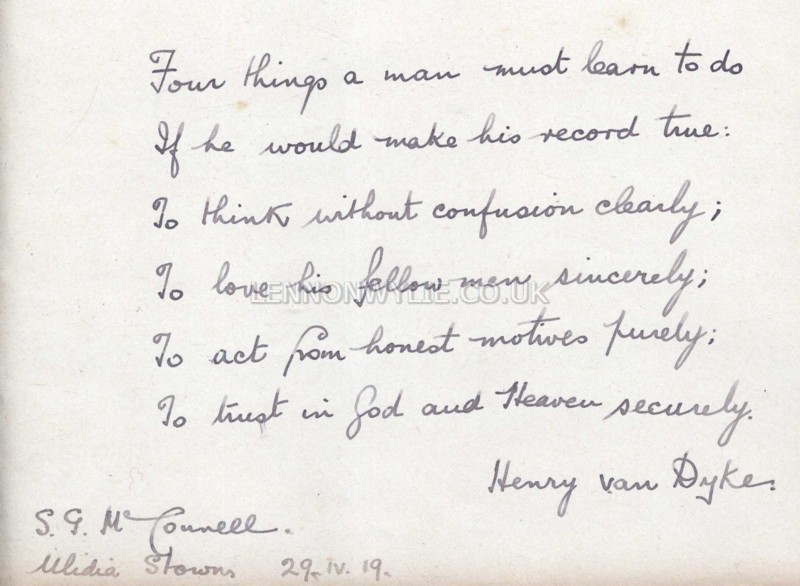 Four things a man must learn to do
If he would make his record true:
To think without confusion clearly;
To love his fellow men sincerely;
LENNONWYLIE.CO.UK
To act from honest motives purely;
To trust in God and Heaven securely.
Henry van Dyke.
S. G. McConnell.
Ulidia 29.IV.19.